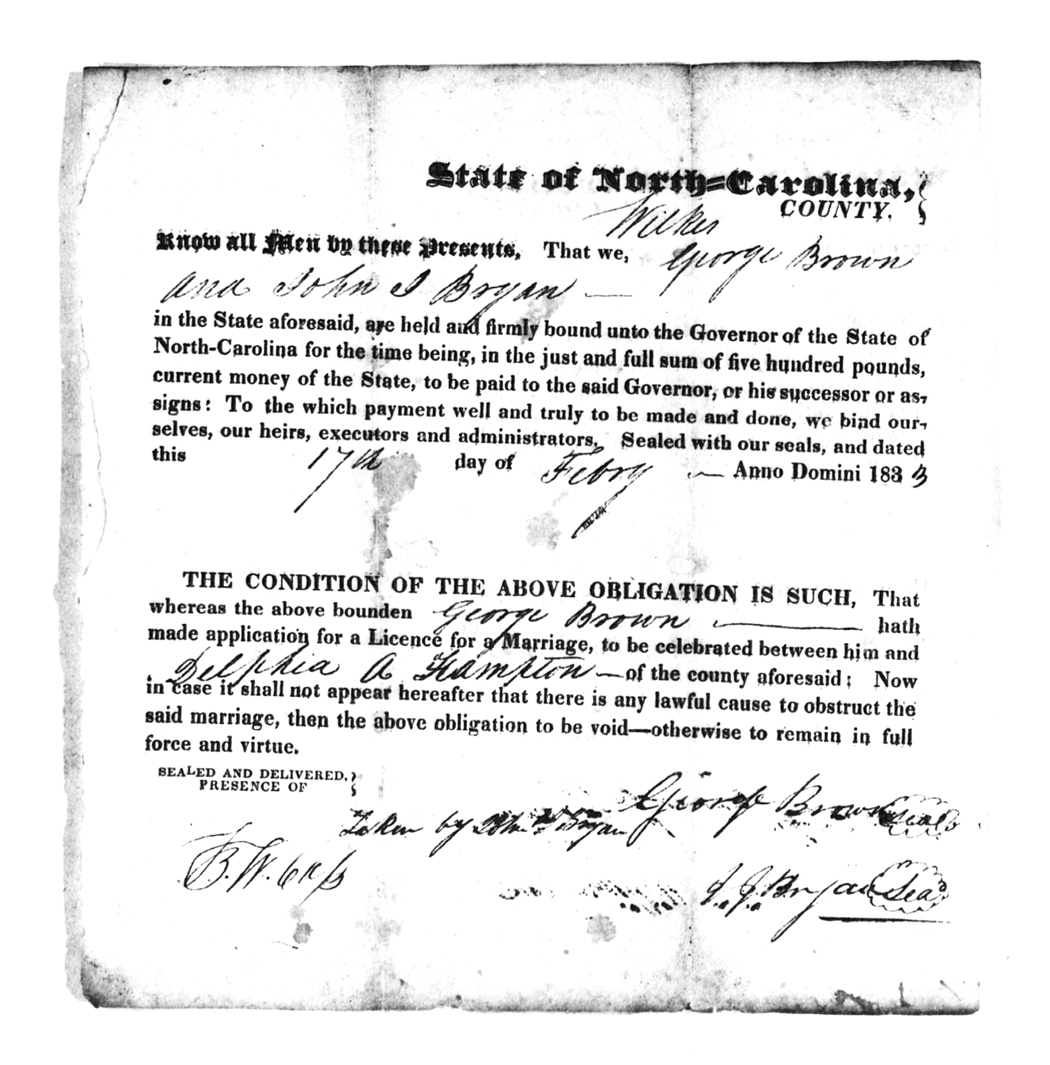 State of North=Carolina,
Wilkes COUNTY.
Know all Men by these Presents, That we, George Brown
and John J Bryan —
in the State aforesaid, are held and firmly bound unto the Governor of the State of
North-Carolina for the time being, in the just and full sum of five hundred pounds,
current money of the State, to be paid to the said Governor, or his successor or as-
signs: To the which payment well and truly to be made and done, we bind our-
selves, our heirs, executors and administrators. Sealed with our seals, and dated
this 17th day of Febry — Anno Domini 1833
THE CONDITION OF THE ABOVE OBLIGATION IS SUCH, That
whereas the above bounden George Brown — hath
made application for a Licence for a Marriage, to be celebrated between him and
Delphia A Hampton — of the county aforesaid; Now
in case it shall not appear hereafter that there is any lawful cause to obstruct the
said marriage, then the above obligation to be void—otherwise to remain in full
force and virtue.
SEALED AND DELIVERED,
PRESENCE OF
George Brown Seal
Taken by Bryan
B. W.
J. J. Bryan Seal